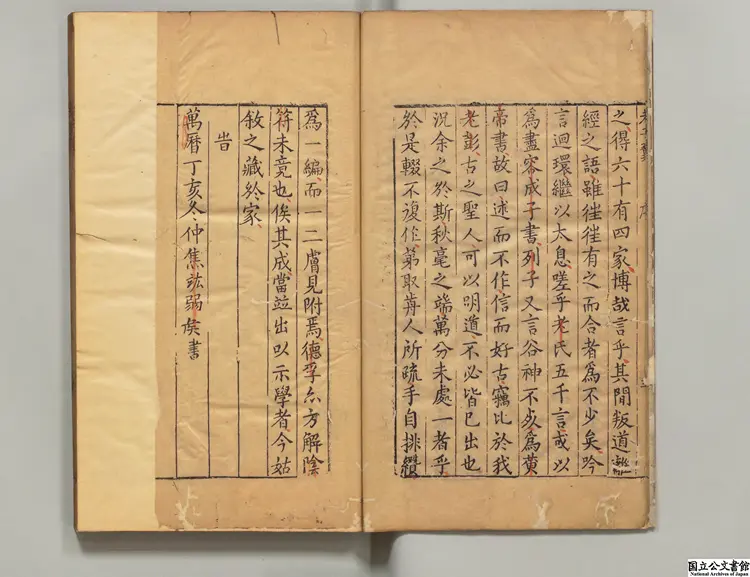 之得六十有四家博哉言乎其間叛道離
經之語雖徃徃有之而合者爲不少矣吟
言迴環繼以太息嗟乎老氏五千言或以
爲盡容成子書列子又言谷神不死爲黄
帝書故曰述而不作信而好古竊比於我
老彭古之聖人可以明道不必皆已出也
況余之於斯秋毫之端萬分未處一者乎
於是輟不復作第取前人所疏手自排纘
爲一編而一二膚見附焉德孚亦方解陰
符未竟也俟其成當並出以示學者今姑
敘之藏於家
旹
萬曆丁亥冬仲焦竑弱侯書
国立公文書館
National Archives of Japan